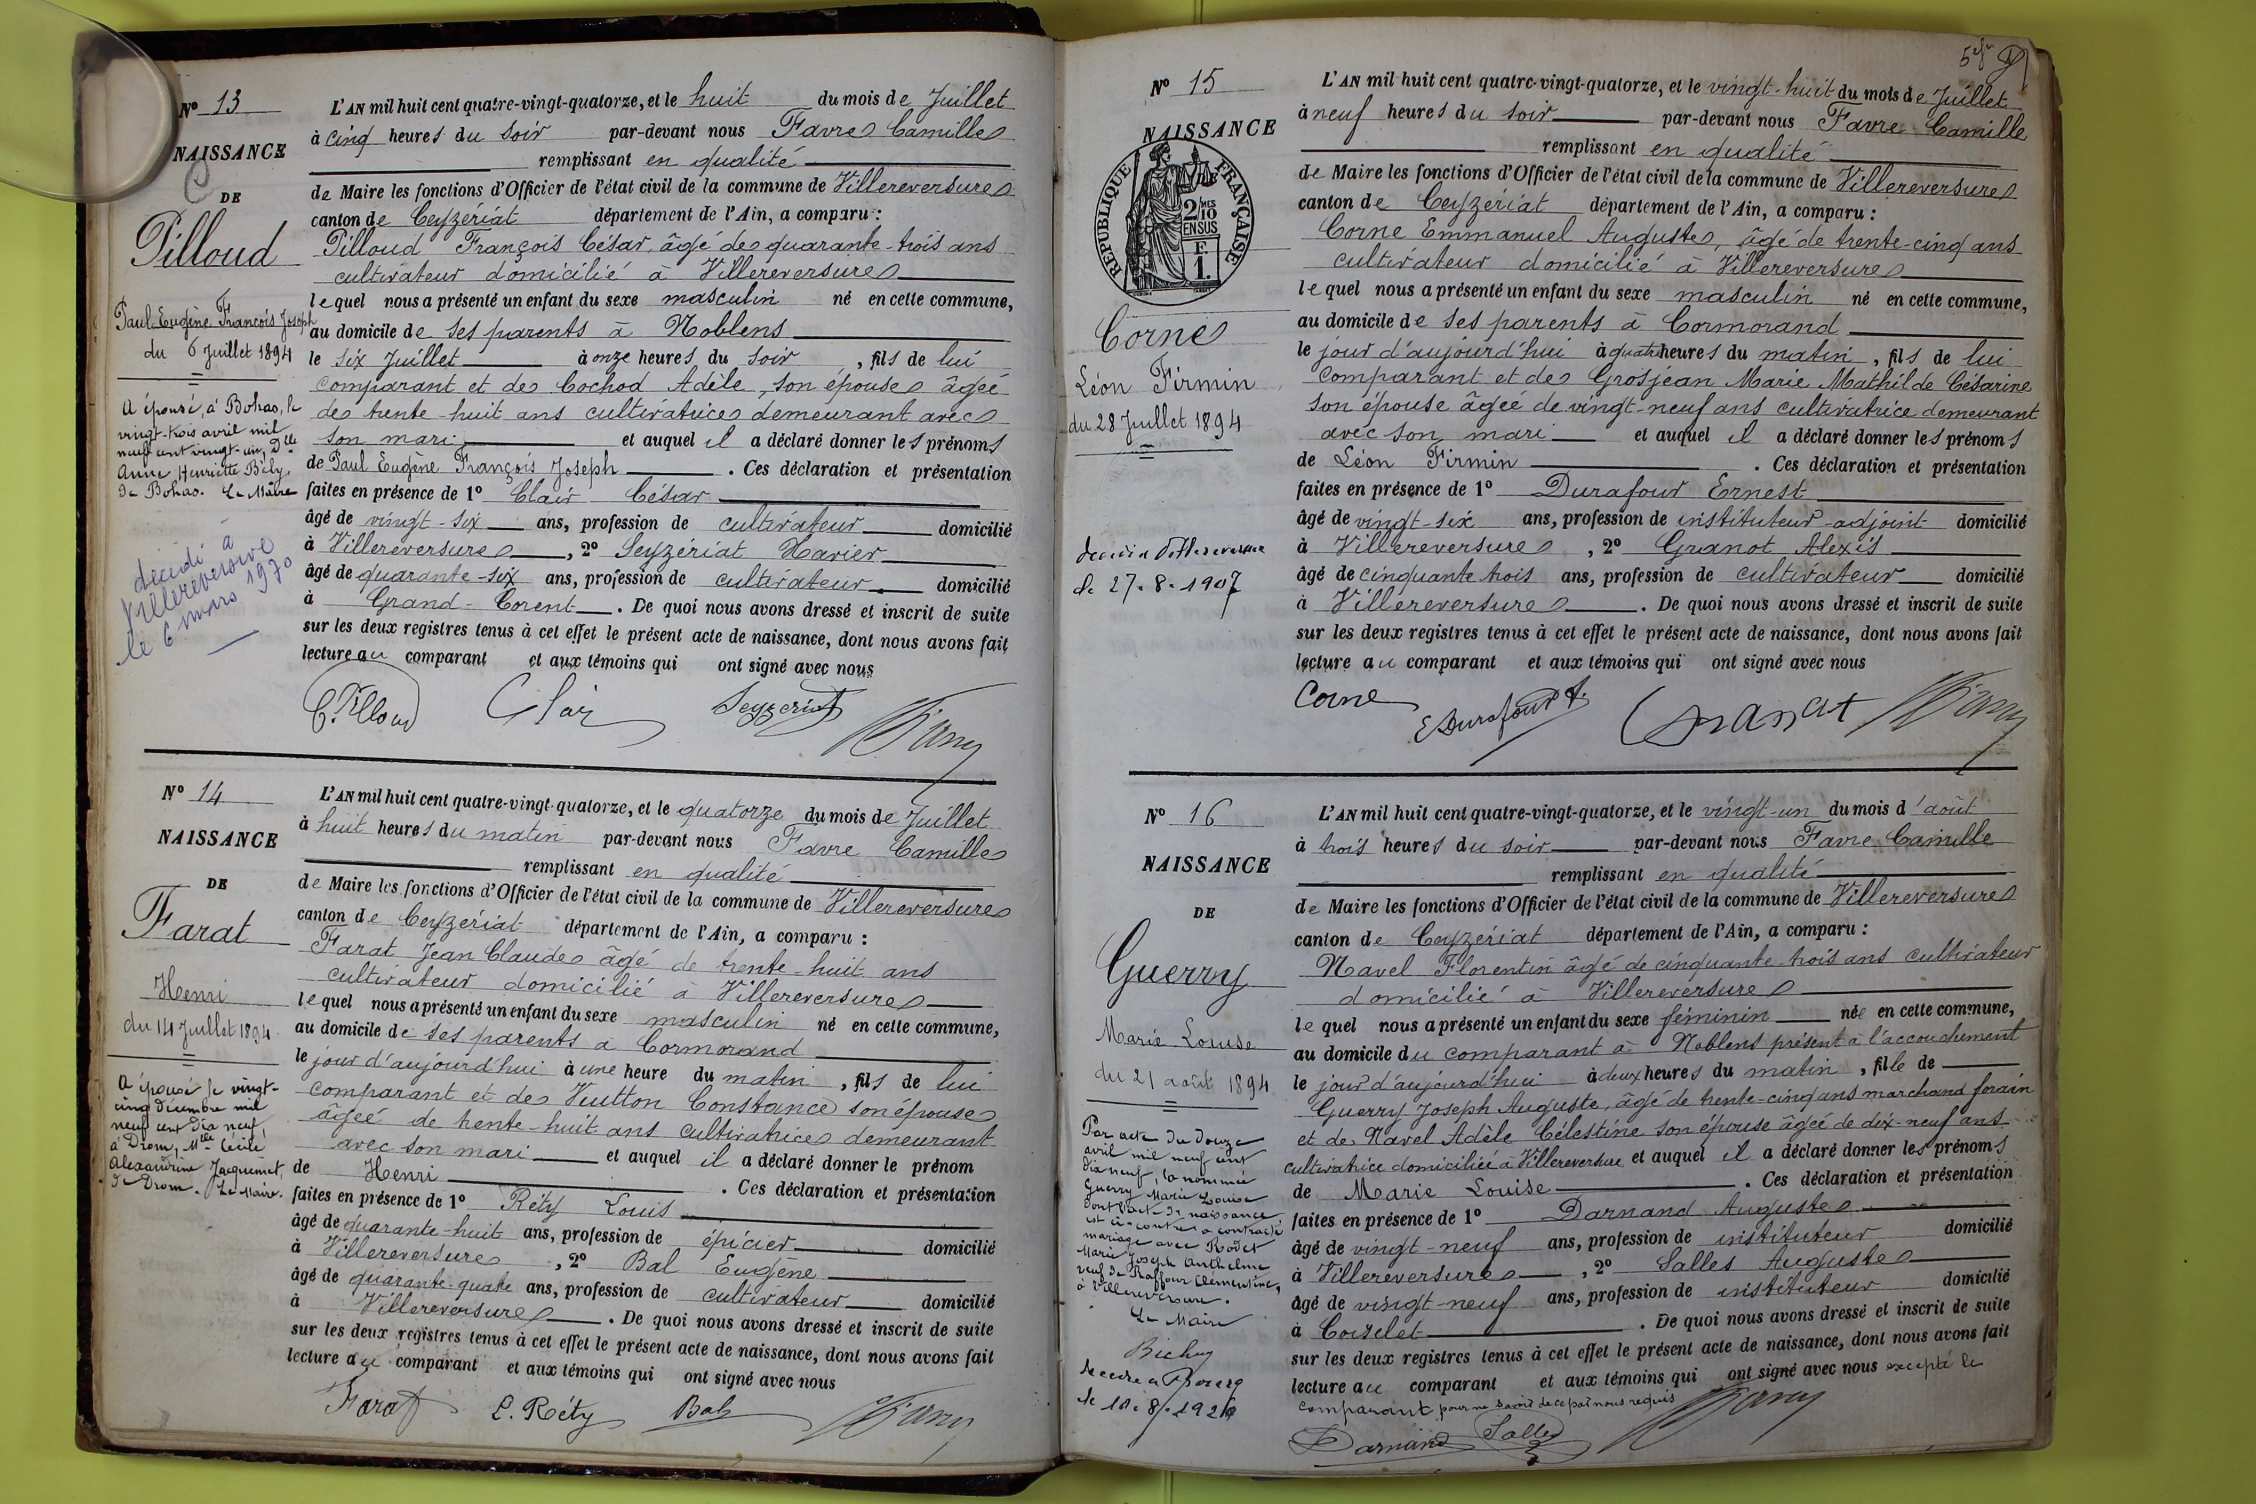 Nº 13
NAISSANCE
DE
Pilloud
Paul Eugène François Joseph
du 6 Juillet 1894
A épousé, à Bohas, le
vingt-trois avril mil
neuf cent vingt-un, Dlle
Anne Henriette Bély,
de Bohas. Le Maire
décédé à
Villereversure
le 6 mars 1970
L'AN mil huit cent quatre-vingt-quatorze, et le huit du mois de Juillet
à cinq heures du soir par-devant nous Favre Camille
remplissant en qualité
de Maire les fonctions d'Officier de l'état civil de la commune de Villereversure
canton de Ceyzériat département de l'Ain, a comparu :
Pilloud François César, âgé de quarante-trois ans
cultivateur domicilié à Villereversure
lequel nous a présenté un enfant du sexe masculin né en cette commune,
au domicile de ses parents à Noblens
le six Juillet à onze heures du soir, fils de lui
comparant et de Cochod Adèle, son épouse âgée
de trente-huit ans cultivatrice demeurant avec
son mari et auquel il a déclaré donner les prénoms
de Paul Eugène François Joseph. Ces déclaration et présentation
faites en présence de 1º Clair César
âgé de vingt-six ans, profession de cultivateur domicilié
à Villereversure, 2º Seyzériat Xavier
âgé de quarante-six ans, profession de cultivateur domicilié
à Grand-Corent. De quoi nous avons dressé et inscrit de suite
sur les deux registres tenus à cet effet le présent acte de naissance, dont nous avons fait
lecture au comparant et aux témoins qui ont signé avec nous
C. Pilloud Clair Seyzeriat
Nº 14
NAISSANCE
DE
Farat
Henri
du 14 Juillet 1894
A épousé le vingt-
cinq décembre mil
neuf cent dix neuf,
à Drom, Mlle Cécile
Alexandrine Jacquemet,
de Drom. Le Maire.
L'AN mil huit cent quatre-vingt-quatorze, et le quatorze du mois de Juillet
à huit heures du matin par-devant nous Favre Camille
remplissant en qualité
de Maire les fonctions d'Officier de l'état civil de la commune de Villereversure
canton de Ceyzériat département de l'Ain, a comparu :
Farat Jean Claude âgé de trente-huit ans
cultivateur domicilié à Villereversure
lequel nous a présenté un enfant du sexe masculin né en cette commune,
au domicile de ses parents à Cormorand
le jour d'aujourd'hui à une heure du matin, fils de lui
comparant et de Vuitton Constance son épouse
âgée de trente-huit ans cultivatrice demeurant
avec son mari et auquel il a déclaré donner le prénom
de Henri. Ces déclaration et présentation
faites en présence de 1º Réty Louis
âgé de quarante-huit ans, profession de épicier domicilié
à Villereversure, 2º Bal Eugène
âgé de quarante-quatre ans, profession de cultivateur domicilié
à Villereversure. De quoi nous avons dressé et inscrit de suite
sur les deux registres tenus à cet effet le présent acte de naissance, dont nous avons fait
lecture au comparant et aux témoins qui ont signé avec nous
Farat L. Réty Bal
Nº 15
NAISSANCE
RÉPUBLIQUE FRANÇAISE
2/10 MES
EN SUS
F.
1.
Corne
Léon Firmin
du 28 Juillet 1894
décédé à Villereversure
le 27.8.1907
L'AN mil huit cent quatre-vingt-quatorze, et le vingt-huit du mois de Juillet
à neuf heures du soir par-devant nous Favre Camille
remplissant en qualité
de Maire les fonctions d'Officier de l'état civil de la commune de Villereversure
canton de Ceyzériat département de l'Ain, a comparu :
Corne Emmanuel Auguste, âgé de trente-cinq ans
cultivateur domicilié à Villereversure
lequel nous a présenté un enfant du sexe masculin né en cette commune,
au domicile de ses parents à Cormorand
le jour d'aujourd'hui à quatre heures du matin, fils de lui
comparant et de Grosjean Marie Mathilde Césarine
son épouse âgée de vingt-neuf ans cultivatrice demeurant
avec son mari et auquel il a déclaré donner les prénoms
de Léon Firmin. Ces déclaration et présentation
faites en présence de 1º Durafour Ernest
âgé de vingt-six ans, profession de instituteur-adjoint domicilié
à Villereversure, 2º Granot Alexis
âgé de cinquante trois ans, profession de cultivateur domicilié
à Villereversure. De quoi nous avons dressé et inscrit de suite
sur les deux registres tenus à cet effet le présent acte de naissance, dont nous avons fait
lecture au comparant et aux témoins qui ont signé avec nous
Corne E Durafour Granat
Nº 16
NAISSANCE
DE
Guerry
Marie Louise
du 21 août 1894
Par acte du douze
avril mil neuf cent
dix neuf, la nommée
Guerry Marie Louise
dont l'acte de naissance
est ci-contre a contracté
mariage avec Rodet
Marie Joseph Anthelme
veuf de Raffour Clémentine,
à Villereversure.
Le Maire
décédée à Bourg
L'AN mil huit cent quatre-vingt-quatorze, et le vingt-un du mois d'août
à trois heures du soir par-devant nous Favre Camille
remplissant en qualité
de Maire les fonctions d'Officier de l'état civil de la commune de Villereversure
canton de Ceyzériat département de l'Ain, a comparu :
Navel Florentin âgé de cinquante trois ans cultivateur
domicilié à Villereversure
lequel nous a présenté un enfant du sexe féminin née en cette commune,
au domicile du comparant à Noblens présent à l'accouchement
le jour d'aujourd'hui à deux heures du matin, fille de
Guerry Joseph Auguste, âgé de trente-cinq ans marchand forain
et de Navel Adèle Célestine son épouse âgée de dix-neuf ans
cultivatrice domiciliée à Villereversure et auquel il a déclaré donner les prénoms
de Marie Louise. Ces déclaration et présentation
faites en présence de 1º Darnand Auguste
âgé de vingt-neuf ans, profession de instituteur domicilié
à Villereversure, 2º Salles Auguste
âgé de vingt-neuf ans, profession de instituteur domicilié
à Coiselet. De quoi nous avons dressé et inscrit de suite
sur les deux registres tenus à cet effet le présent acte de naissance, dont nous avons fait
lecture au comparant et aux témoins qui ont signé avec nous excepté le
comparant pour ne savoir de ce par nous requis
Darnand Salles